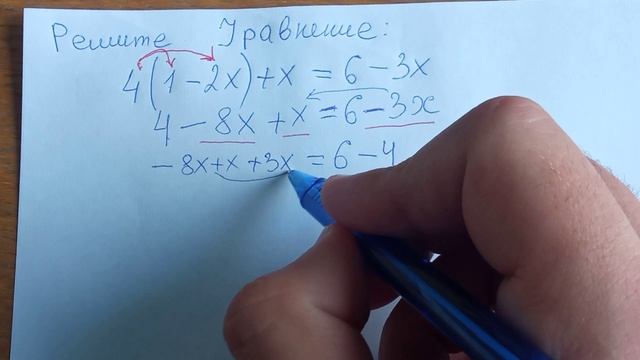 Решите Уравнение:
4(1-2x)+x = 6-3x
4-8x+x=6-3x
-8x+x+3x=6-4